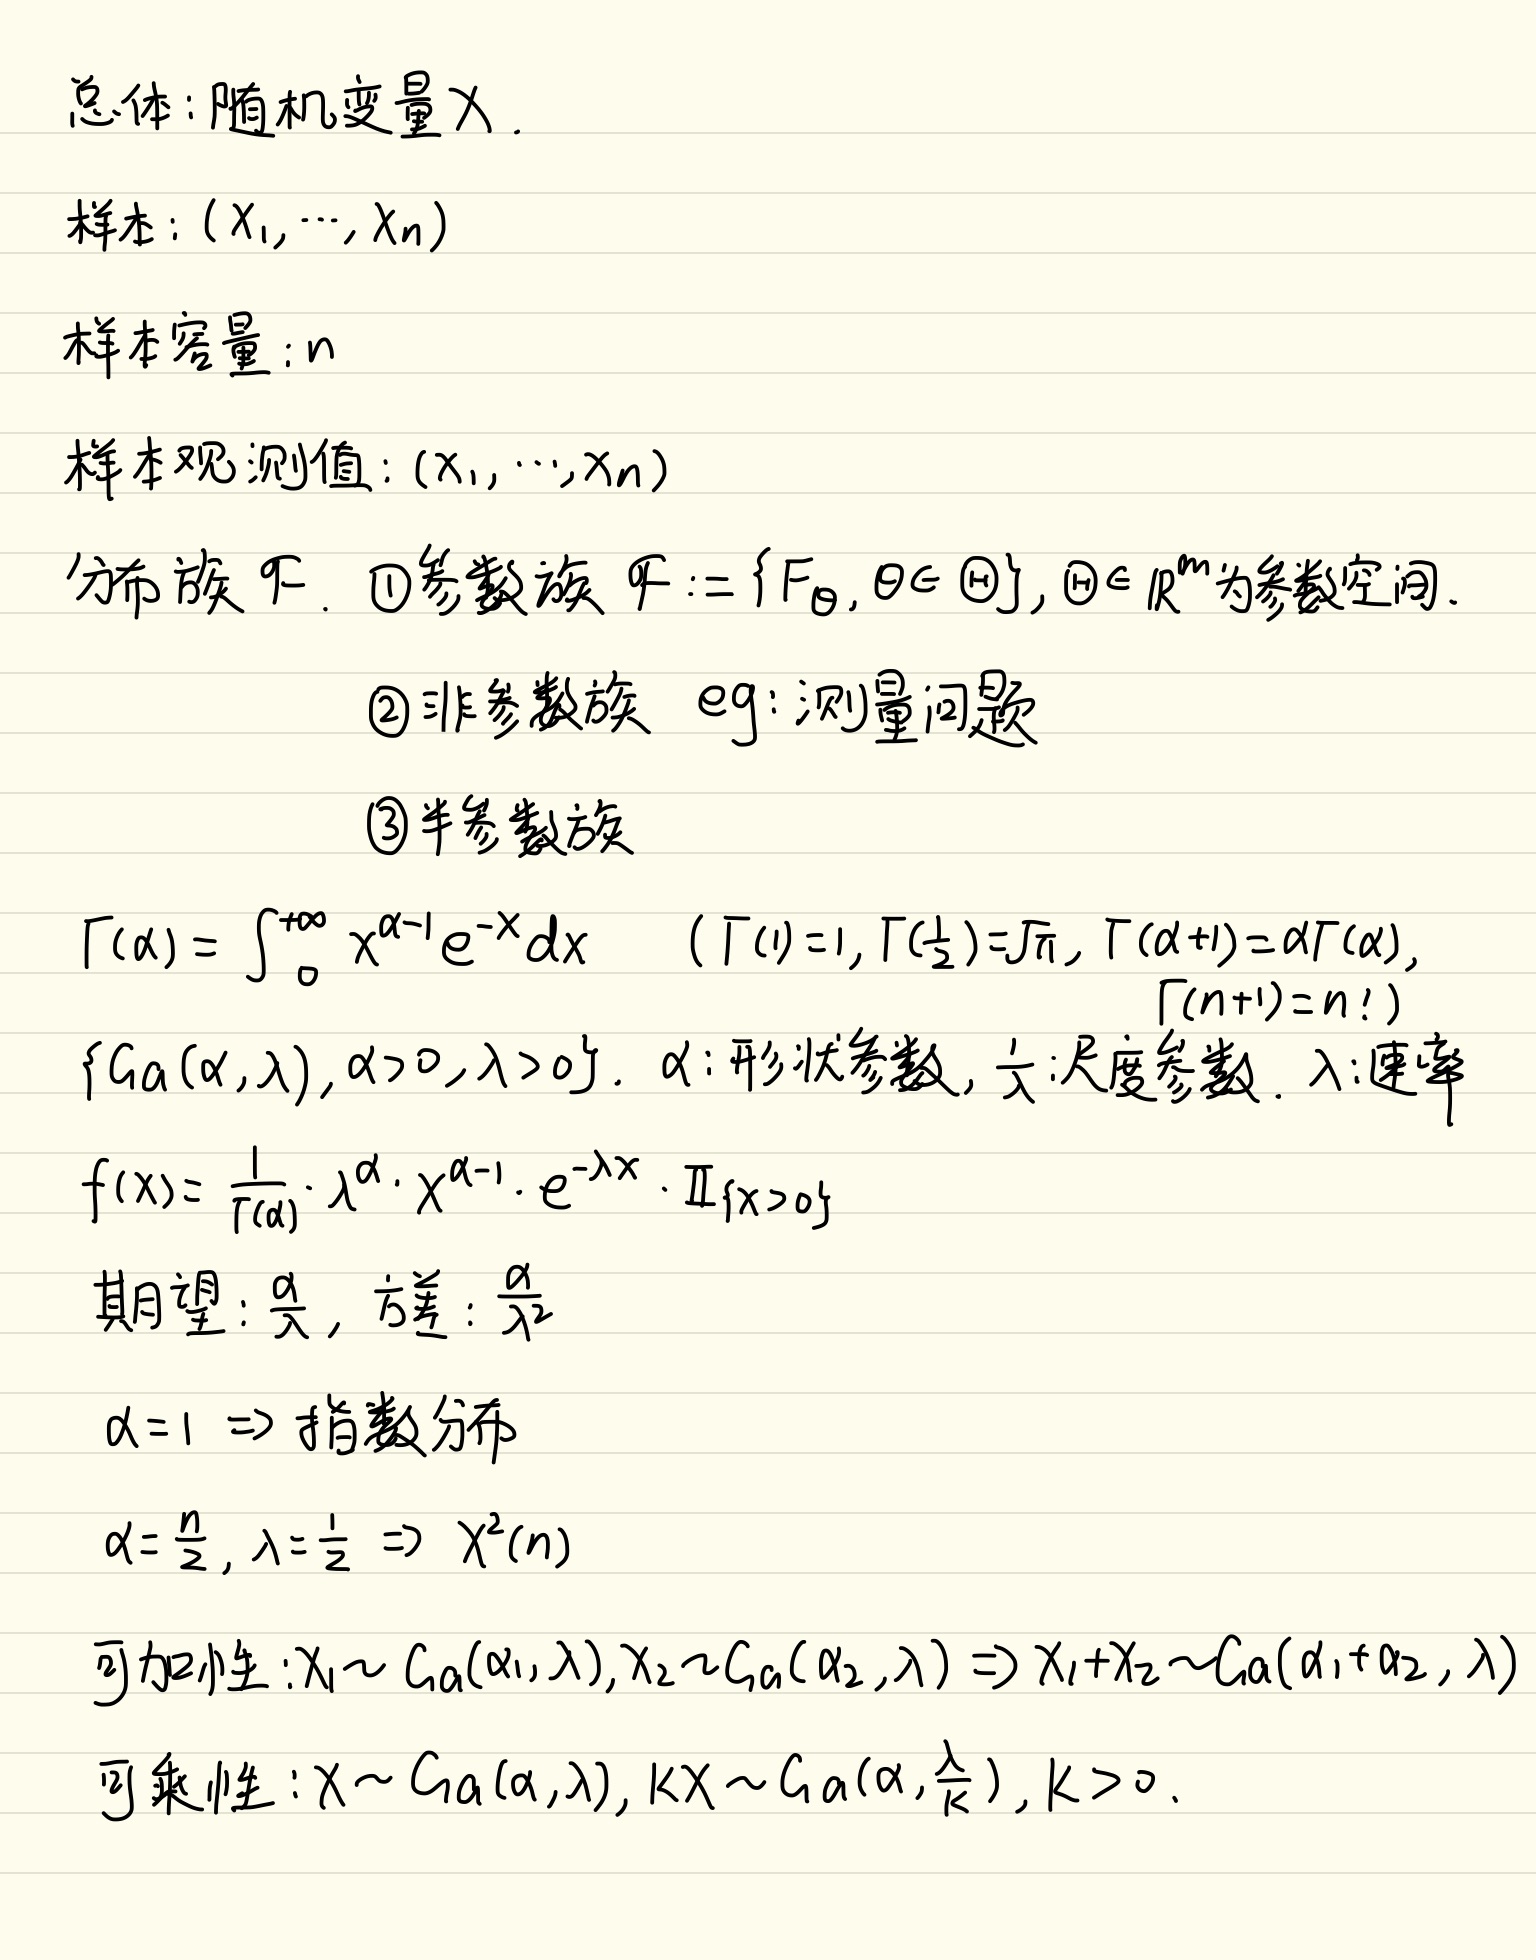 总体：随机变量X.
样本：(X₁, ⋯, Xₙ)
样本容量：n
样本观测值：(x₁, ⋯, xₙ)
分布族 ℱ. ①参数族 ℱ := {F_θ, θ∈Θ}, Θ∈ℝᵐ为参数空间.
②非参数族 eg：测量问题
③半参数族
Γ(α) = ∫₀^{+∞} x^{α-1} e^{-x} dx (Γ(1)=1, Γ(1/2)=√π, Γ(α+1)=αΓ(α),
Γ(n+1)=n!)
{Ga(α,λ), α>0, λ>0}. α：形状参数, 1/λ：尺度参数. λ：速率
f(x) = 1/Γ(α) · λ^α · x^{α-1} · e^{-λx} · 𝕀_{{x>0}}
期望：α/λ, 方差：α/λ²
α=1 ⇒ 指数分布
α=n/2, λ=1/2 ⇒ χ²(n)
可加性：X₁~Ga(α₁,λ), X₂~Ga(α₂,λ) ⇒ X₁+X₂~Ga(α₁+α₂, λ)
可乘性：X~Ga(α,λ), KX~Ga(α, λ/K), K>0.